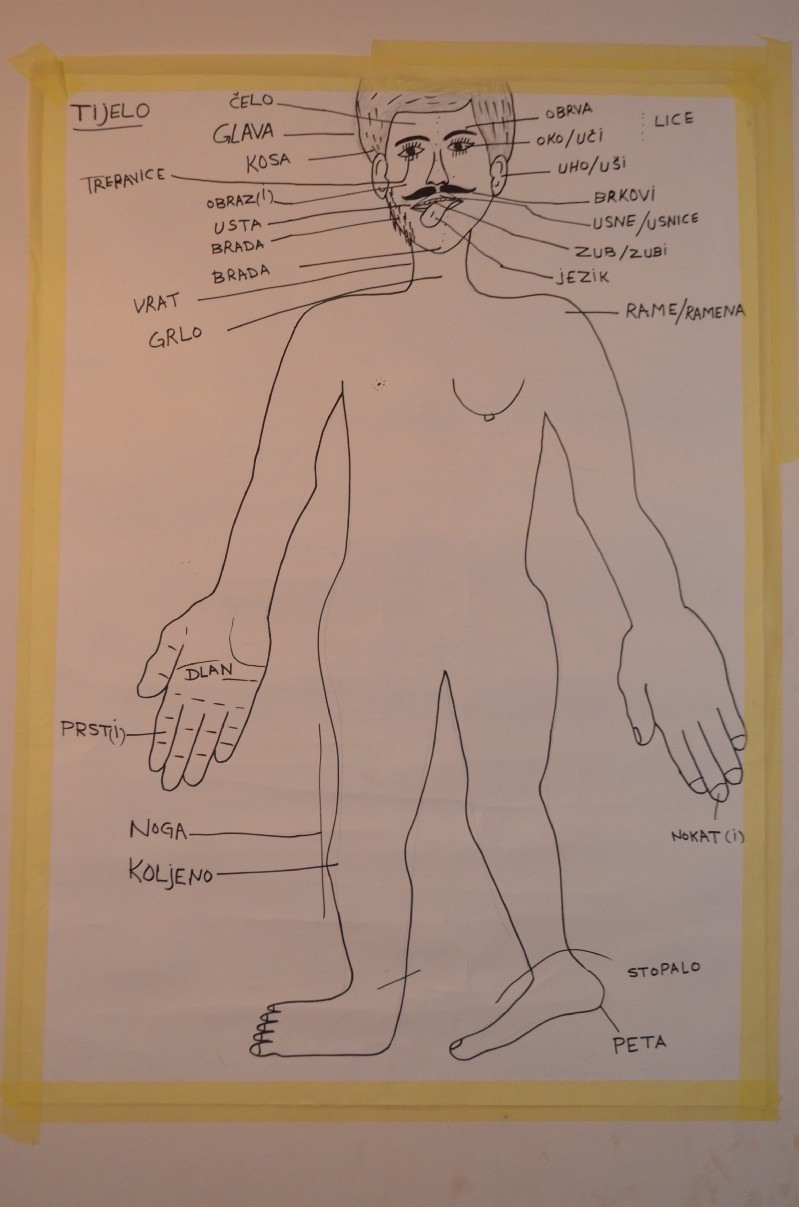 TIJELO
ČELO
GLAVA
KOSA
TREPAVICE
OBRAZ(I)
USTA
BRADA
BRADA
VRAT
GRLO
OBRVA
LICE
OKO/UČI
UHO/UŠI
BRKOVI
USNE/USNICE
ZUB/ZUBI
JEZIK
RAME/RAMENA
DLAN
PRST(I)
NOGA
KOLJENO
NOKAT(I)
STOPALO
PETA